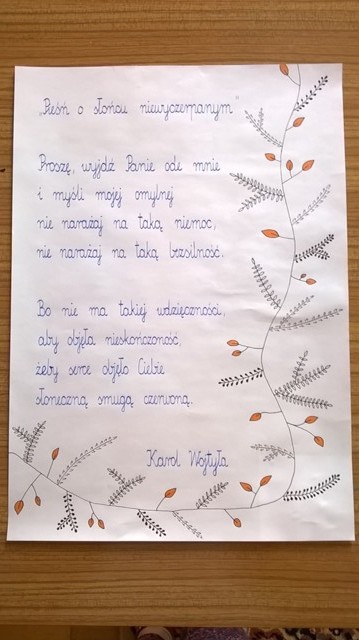 „Pieśń o słońcu niewyczerpanym”
Proszę, wyjdź Panie ode mnie
i myśli mojej omylnej
nie narażaj na taką niemoc,
nie narażaj na taką bezsilność.
Bo nie ma takiej wdzięczności,
aby objęła nieskończoność,
żeby serce objęło Ciebie
słoneczną smugą czerwoną.
Karol Wojtyła